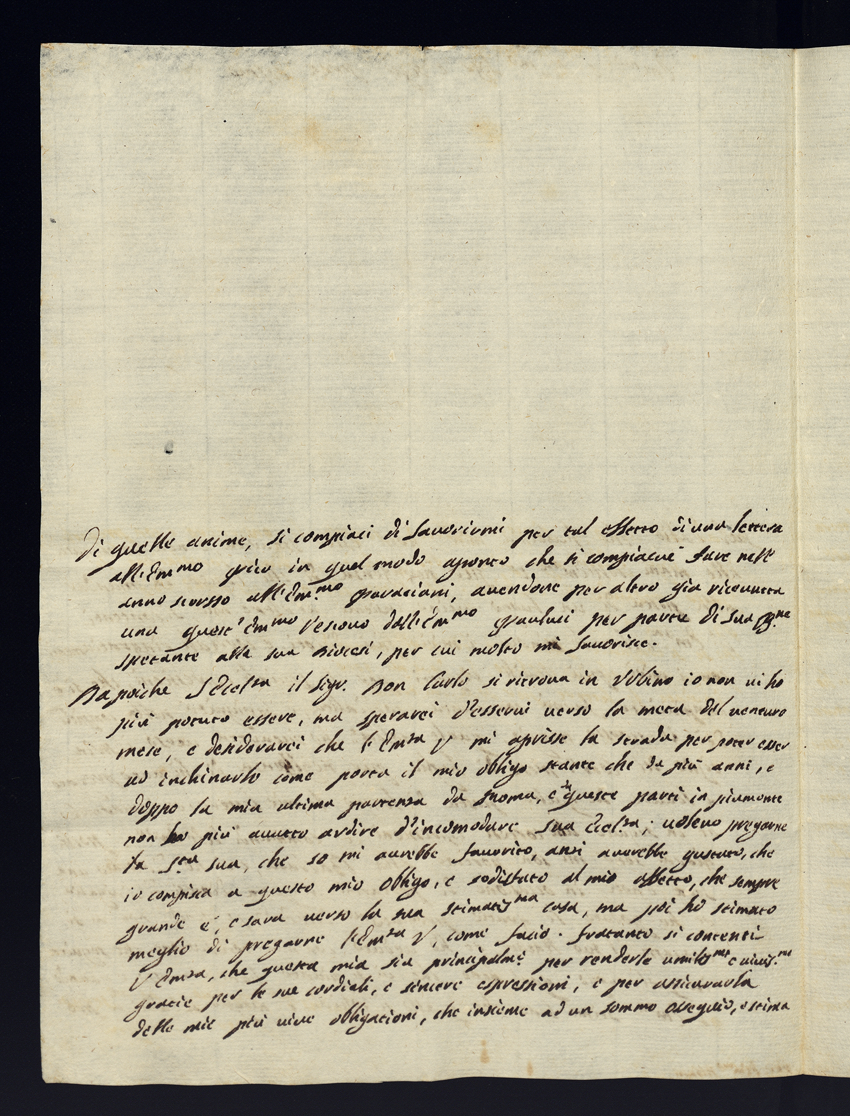 di quelle anime, si compiaci di favorirmi per tal effetto di una lettera
all'Em^mo in quel modo aponto che si compiacue fare nell'
anno scorsso all'Em^mo Paraciani, avendone per altro gia riceuuta
una quest'Em^mo Vescouo dall'Em^mo Paulucci per parte di Sua
spetante alla sua Diocesi, per cui molto mi favorisce.
Da poiche S Ecel^za il Sigr. Don Carlo si ritroua in Vrbino io non ui ho
più potuto essere, ma sperarei d'esserui uerso la metà del venturo
mese, e desiderarei che l'Em^za V mi aprisse la strada per poter esser
ad inchinarlo come porta il mio obligo stante che da più anni, e
doppo la mia ultima partenza da Roma, e in queste parti in piamonte
non ho più auuto ardire d'incomodare Sua Ecel.^za; uoleuo pregarne
la S^tà Sua, che so mi aurebbe favorito, anzi auerebbe gustato, che
io compisca a questo mio obligo, e sodisfato al mio affetto, che sempre
grande è, e sarà uerso la sua stimatis^ma casa, ma poi hò stimato
meglio di pregarne l'Em^za V, come facio. fratanto si contenti
V Em^za, che questa mia sia principalm^e per renderle umilis^me e viuis.^me
gracie per le sue cordiali, e sincere espressioni, e per assicurarla
delle mie più uiue obligacioni, che insieme ad un sommo ossequio, e stima